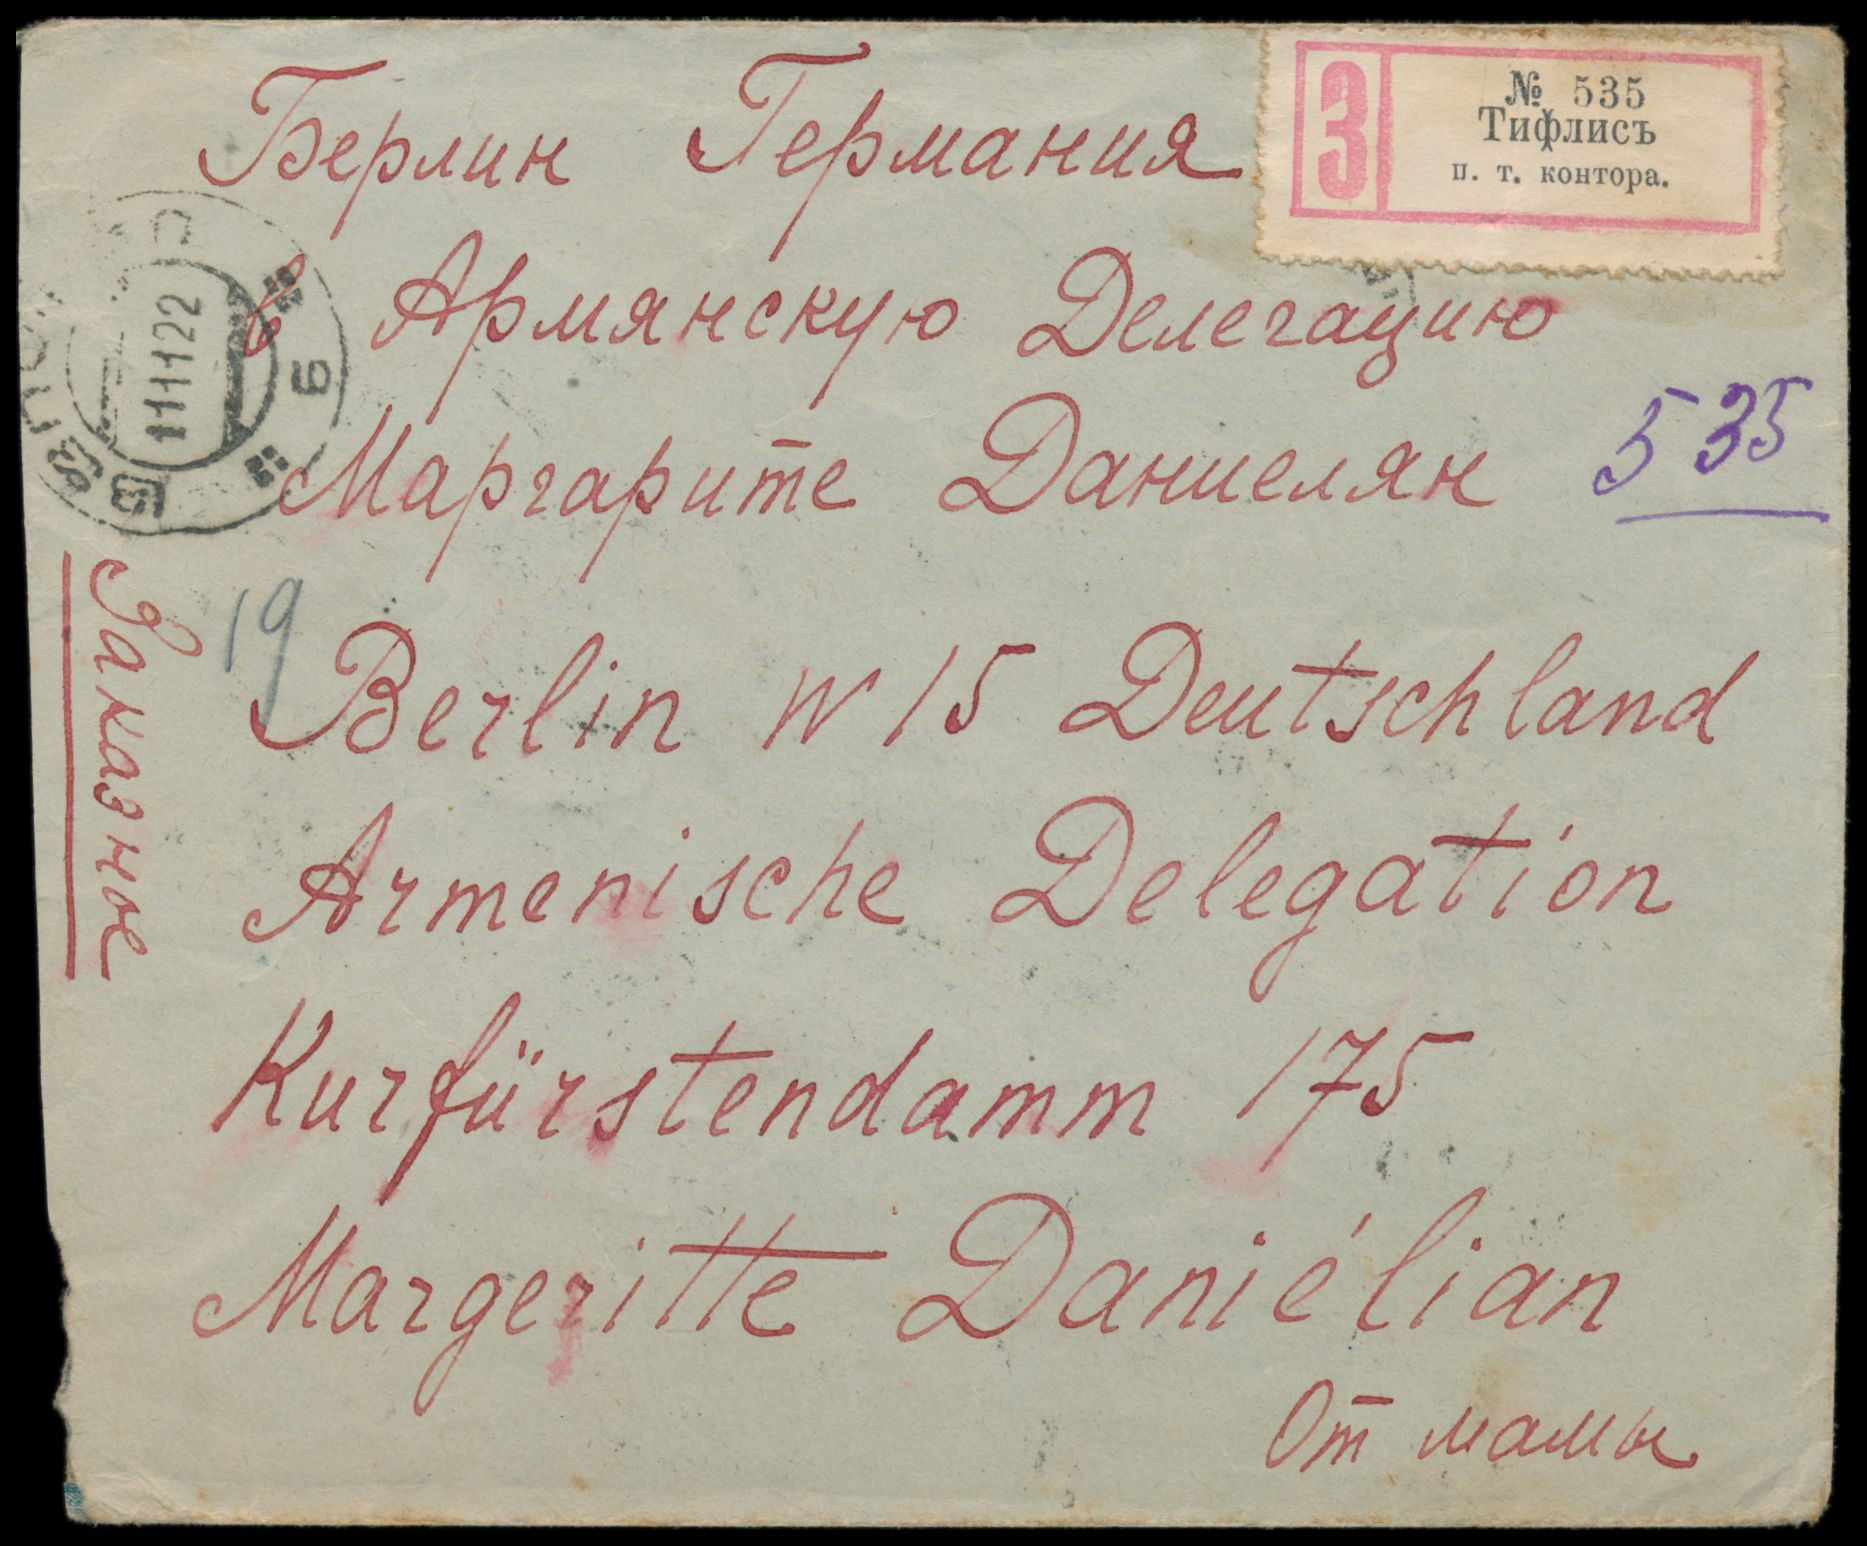 Берлин Германия
З
№ 535
Тифлисъ
п. т. контора.
в Армянскую Делегацию
Маргарите Даниелян
535
11 11 22
Б
Заказное
19
Berlin W 15 Deutschland
Armenische Delegation
Kurfürstendamm 175
Margeritte Daniélian
От мамы